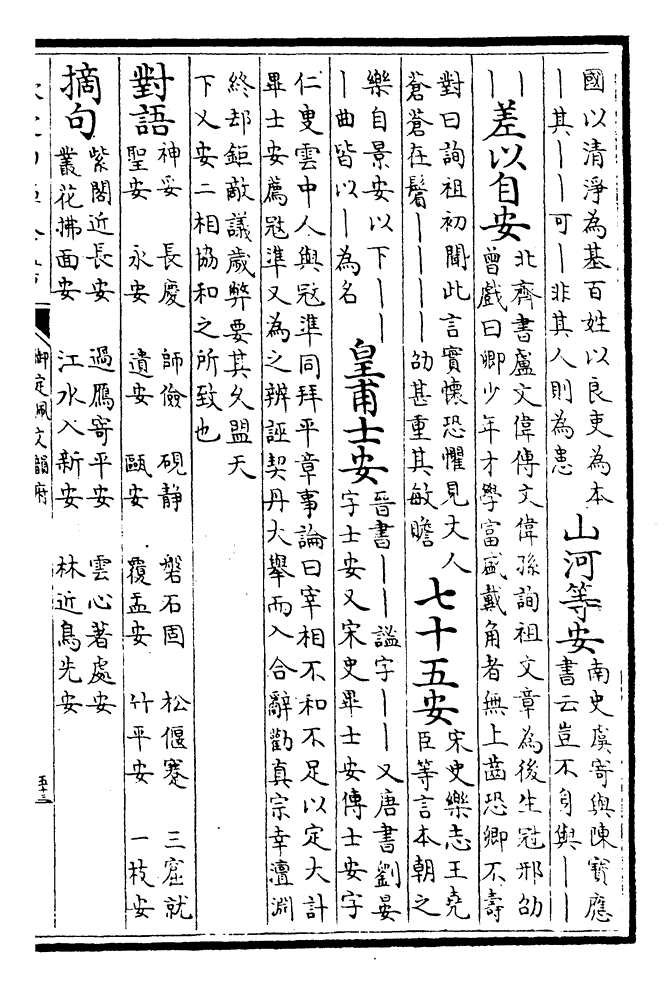 國以清淨為基百姓以良吏為本
丨其丨丨可丨非其人則為患
山河等安
南史虞寄與陳寶應
書云豈不身與丨丨
丨
丨
差以自安
北齊書盧文偉傳文偉孫詢祖文章為後生冠邢劭
曾戲曰卿少年才學富盛戴角者無上齒恐卿不壽
對曰詢祖初聞此言實懷恐懼見丈人
蒼蒼在鬢丨丨丨丨劭甚重其敏贍
七十五安
宋史樂志王堯
臣等言本朝之
樂自景安以下丨丨
丨曲皆以丨為名
皇甫士安
晉書丨丨謐字丨丨又唐書劉晏
字士安又宋史畢士安傳士安字
仁叟雲中人與冦準同拜平章事論曰宰相不和不足以定大計
畢士安薦冦準又為之辨誣契丹大舉而入合辭勸真宗幸澶淵
終却鉅敵議歲弊要其久盟天
下乂安二相協和之所致也
對語
神妥 長慶 師儉 硯静 磐石固 松偃蹇 三窟就
聖安 永安 遺安 甌安 覆盂安 竹平安 一枝安
摘句
紫閣近長安 過鴈寄平安 雲心著處安
叢花拂面安 江水入新安 林近鳥先安
御定佩文韻府
五十三